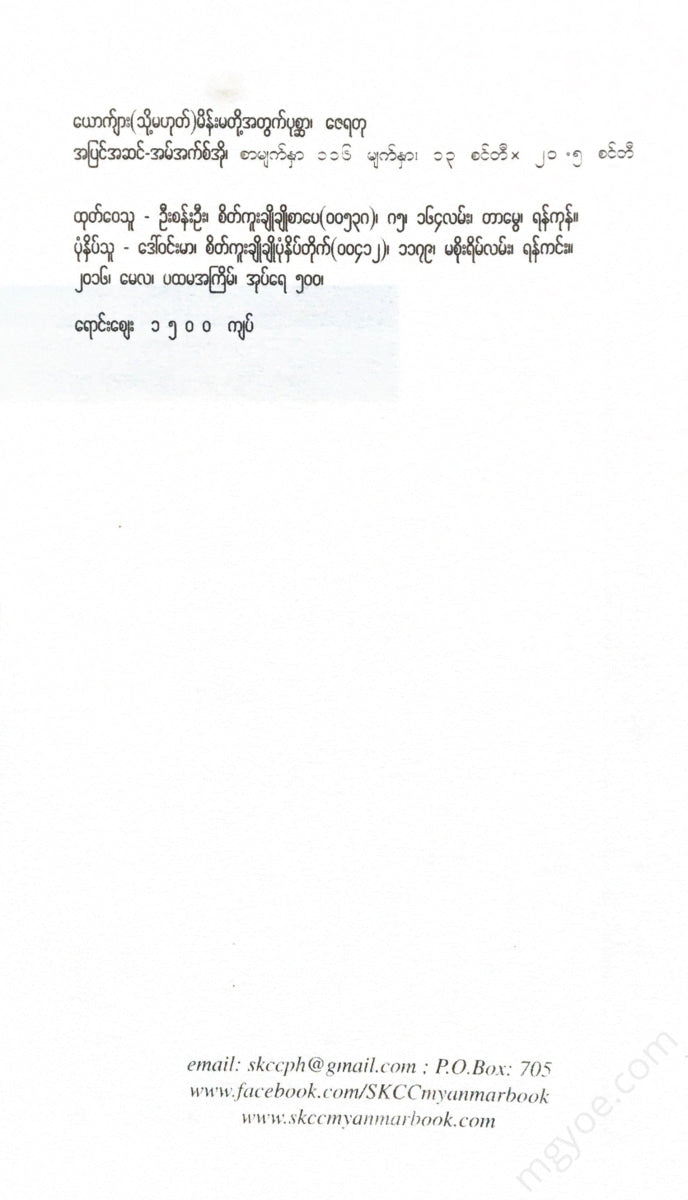 ယောက်ျား(သို့မဟုတ်)မိန်းမတို့အတွက်ပုစ္ဆာ၊ ဇေရတု
အပြင်အဆင်-အမ်အက်စ်အို၊ စာမျက်နှာ ၁၁၆ မျက်နှာ၊ ၁၃ စင်တီ× ၂၀ .၅ စင်တီ
ထုတ်ဝေသူ - ဦးစန်းဦး၊ စိတ်ကူးချိုချိုစာပေ(၀၀၅၃၁)၊ ဂ၅၊ ၁၆၄လမ်း၊ တာမွေ၊ ရန်ကုန်။
ပုံနှိပ်သူ - ဒေါ်ဝင်းမာ၊ စိတ်ကူးချိုချိုပုံနှိပ်တိုက်(၀၀၄၁၂)၊ ၁၁၇၉၊ မစိုးရိမ်လမ်း၊ ရန်ကင်း။
၂၀၁၆၊ မေလ၊ ပထမအကြိမ်၊ အုပ်ရေ ၅၀၀၊
ရောင်းဈေး ၁ ၅ ၀ ၀ ကျပ်
email: skccph@gmail.com ; P.O.Box: 705
www.facebook.com/SKCCmyanmarbook
www.skccmyanmarbook.com
mgyoe.com